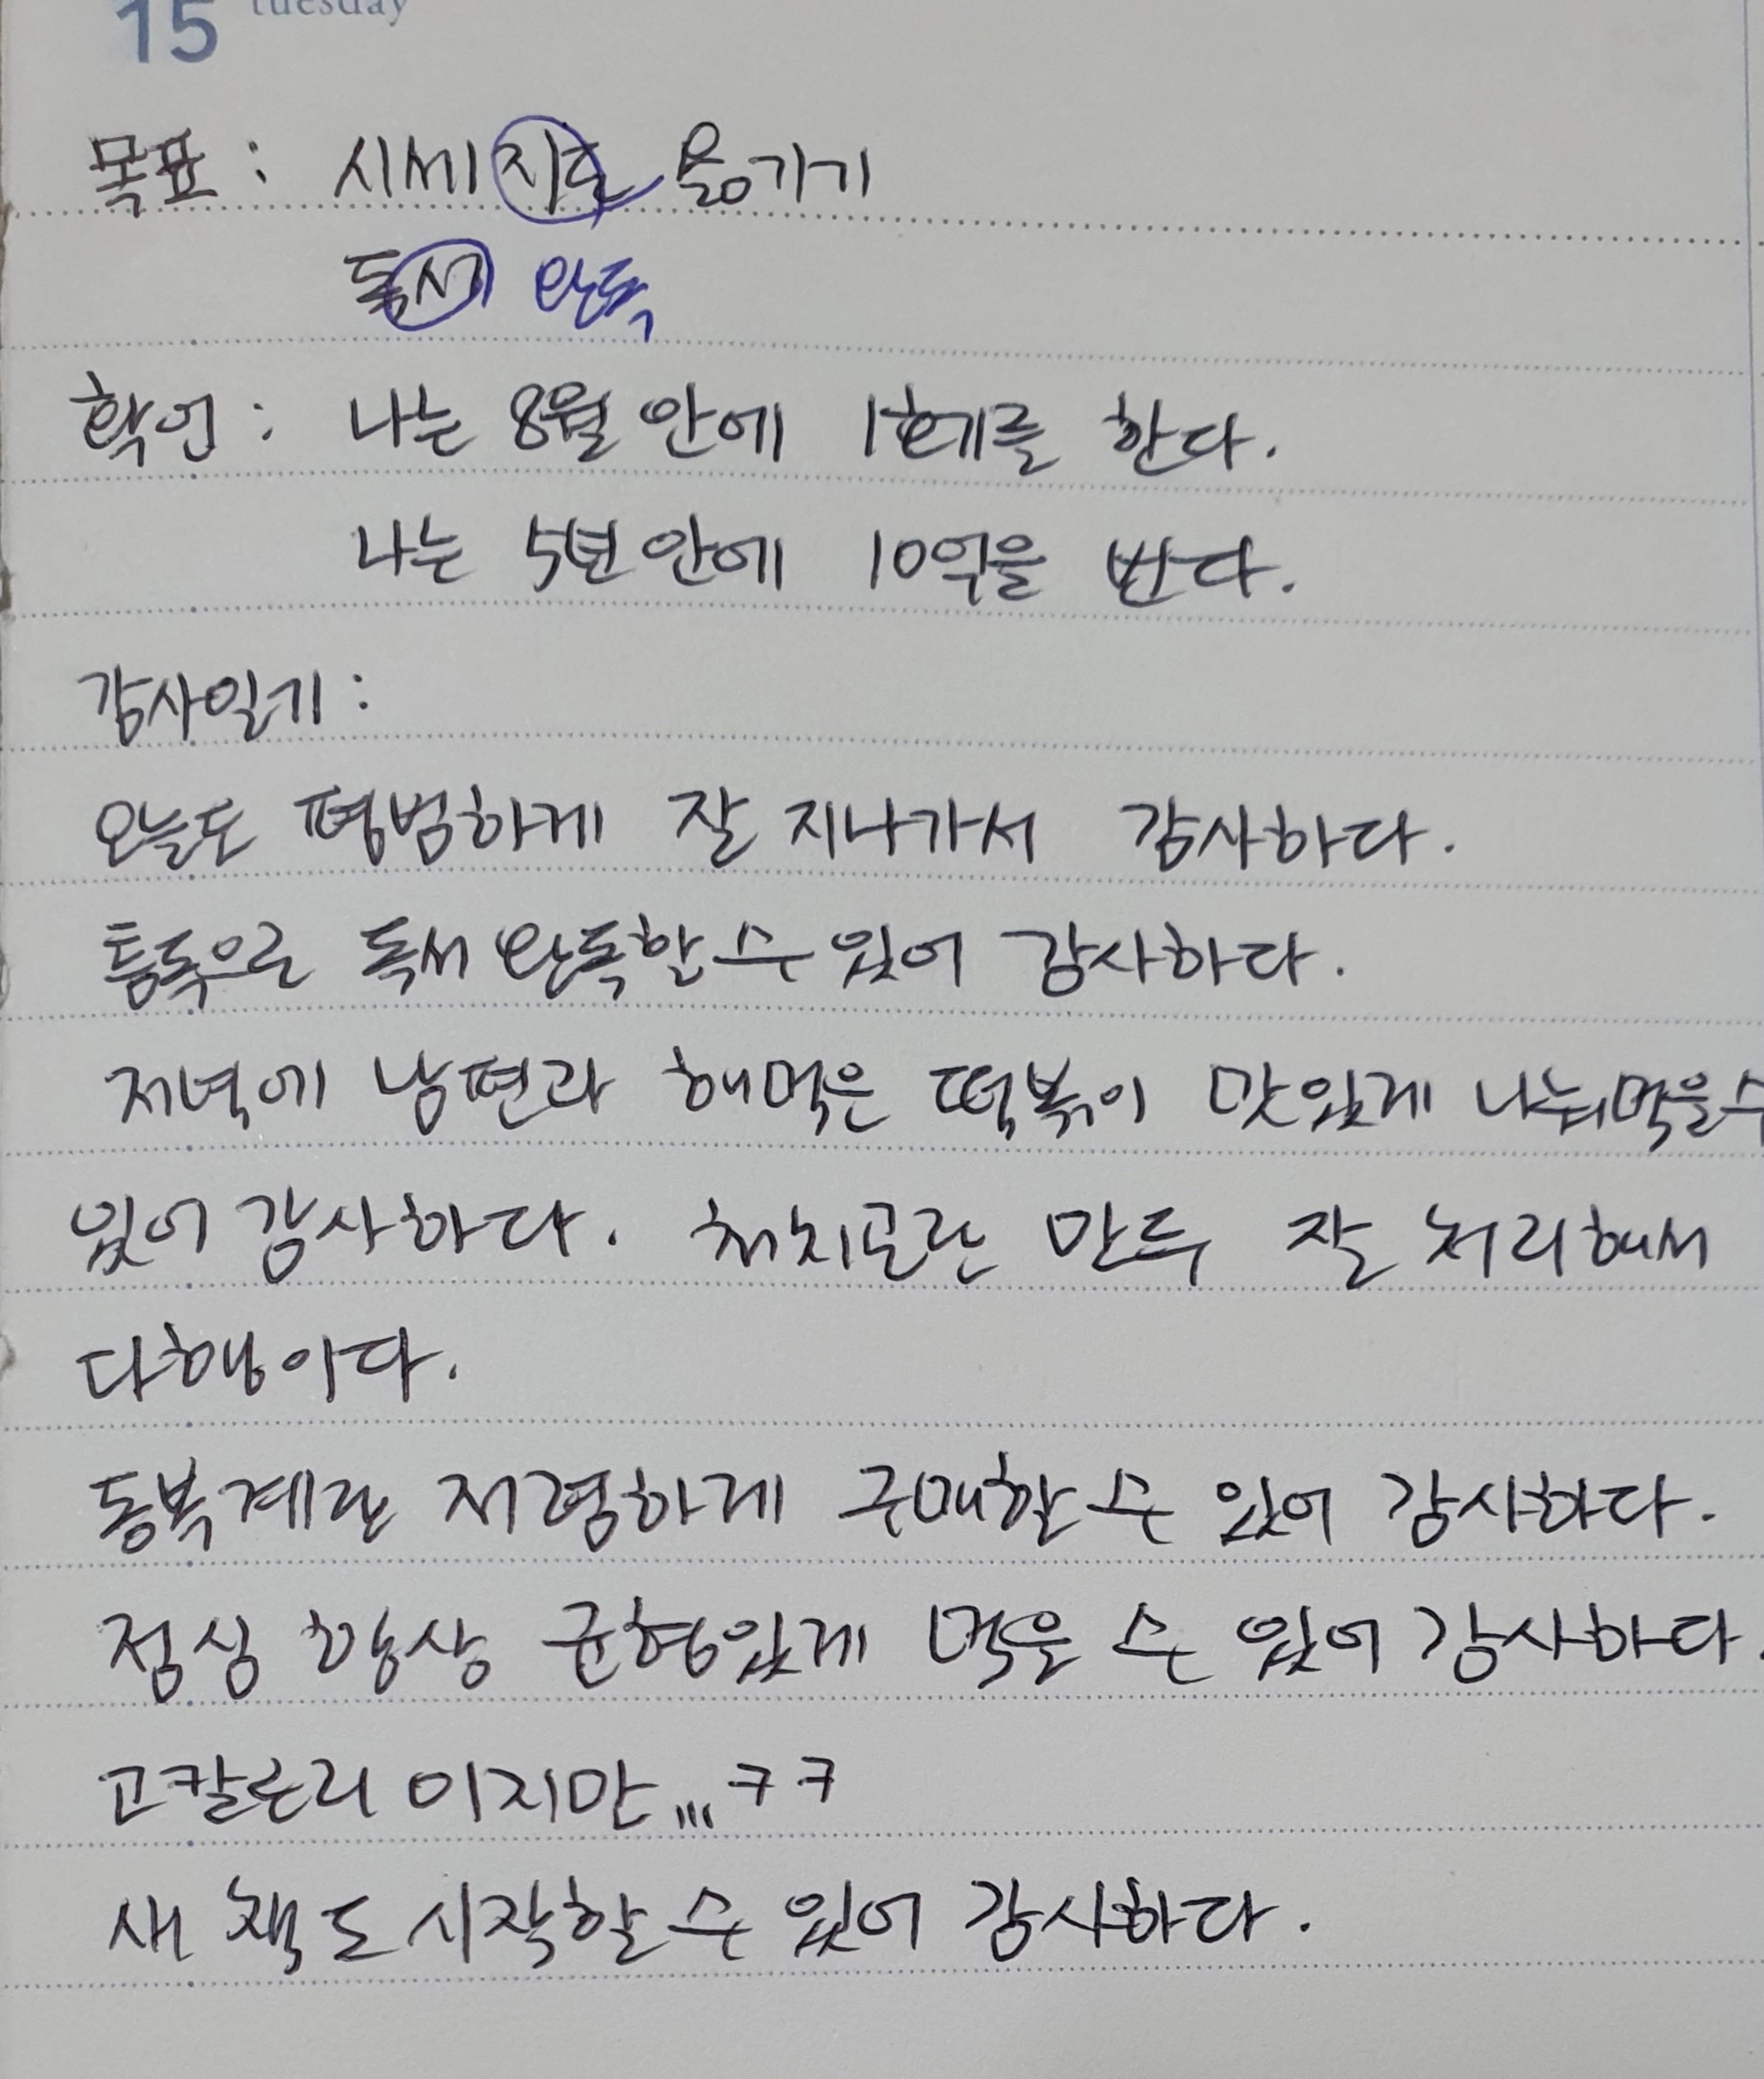 15 tuesday
목표 : 시세지도 옮기기
독서 완독
확언 : 나는 8월 안에 1호기를 한다.
나는 5년 안에 10억을 번다.
감사일기 :
오늘도 평범하게 잘 지나가서 감사하다.
틈독으로 독서 완독할 수 있어 감사하다.
저녁에 남편과 해먹은 떡볶이 맛있게 나눠먹을수
있어 감사하다. 만두 잘 처리해서
다행이다.
동복계란 저렴하게 구매할 수 있어 감사하다.
점심 항상 균형있게 먹을 수 있어 감사하다.
고칼로리 이지만...ㅋㅋ
새 책도 시작할 수 있어 감사하다.